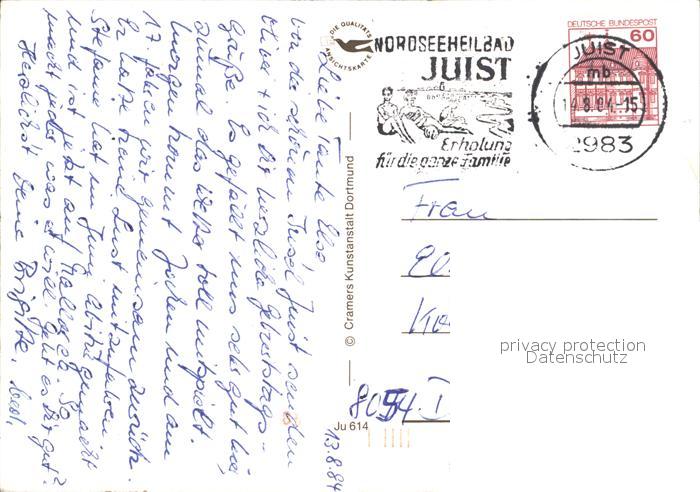 DIE QUALITÄTS
ANSICHTSKARTE
NORDSEEHEILBAD
JUIST
Erholung
für die ganze Familie
DEUTSCHE BUNDESPOST
60
JUIST
mb
.8.84.-15
2983
13.8.84
Liebe Tante Else,
von der schönen Insel Juist senden
wir dir herzliche Geburtstags-
grüße. Es gefällt uns sehr gut hier,
zumal das Wetter toll mitspielt.
Morgen kommt Jochen und am
17. fahren wir gemeinsam zurück.
Er hatte keine Lust mitzufahren.
Stefanie hat im Juni Abitur gemacht
und ist jetzt auf Mallorca. So
macht jedes was es will. Geht es Dir gut?
Herzlichst Deine Brigitte,
© Cramers Kunstanstalt Dortmund
Ju 614
Frau
El
8054
privacy protection
Datenschutz